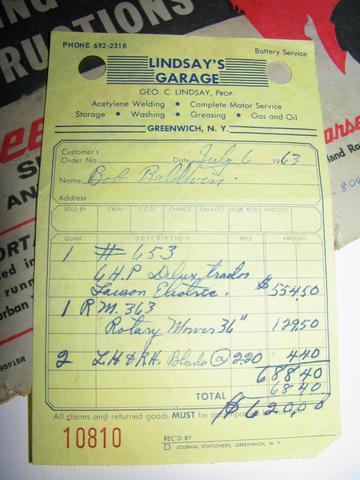 PHONE 692-2318
Battery Service
LINDSAY'S
GARAGE
GEO. C. LINDSAY, PROP.
Acetylene Welding • Complete Motor Service
Storage • Washing • Greasing • Gas and Oil
GREENWICH, N. Y.
Customer's
Order No. Date July 6 1963
Name Bob Baldwin.
Address
SOLD BY CASH C.O.D. CHARGE ON ACCT. MDSE. RETD. PAID OUT
QUAN. DESCRIPTION PRICE AMOUNT
1 # 653
6 H.P Delux, trador
Lauson Electric. $ 554.50
1 R M. 363
"Rotary Mower 36" 129.50
2 L.H & R.H. Blade @ 2.20 4.40
688.40
68.40
TOTAL $ 620.00
All claims and returned goods MUST be accompanied
10810
REC'D BY
JOURNAL STATIONERS, GREENWICH, N. Y.